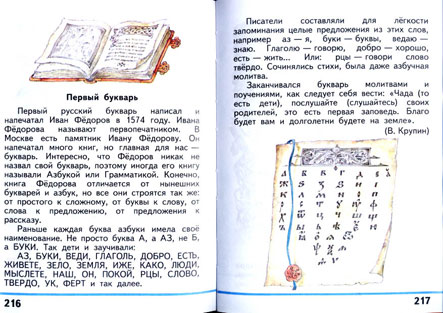 Первый букварь
Первый русский букварь написал и
напечатал Иван Фёдоров в 1574 году. Ивана
Фёдорова называют первопечатником. В
Москве есть памятник Ивану Фёдорову. Он
напечатал много книг, но главная для нас —
букварь. Интересно, что Фёдоров никак не
назвал свой букварь, поэтому иногда его книгу
называли Азбукой или Грамматикой. Конечно,
книга Фёдорова отличается от нынешних
букварей и азбук, но все они строятся так же:
от простого к сложному, от буквы к слову, от
слова к предложению, от предложения к
рассказу.
Раньше каждая буква азбуки имела своё
наименование. Не просто буква А, а АЗ, не Б,
а БУКИ. Так дети и заучивали:
АЗ, БУКИ, ВЕДИ, ГЛАГОЛЬ, ДОБРО, ЕСТЬ,
ЖИВЕТЕ, ЗЕЛО, ЗЕМЛЯ, ИЖЕ, КАКО, ЛЮДИ,
МЫСЛЕТЕ, НАШ, ОН, ПОКОЙ, РЦЫ, СЛОВО,
ТВЕРДО, УК, ФЕРТ и так далее.
216
Писатели составляли для лёгкости
запоминания целые предложения из этих слов,
например аз — я, буки — буквы, ведаю —
знаю. Глаголю — говорю, добро — хорошо,
есть — жить... Или: рцы — говори слово
твёрдо. Сочинялись стихи, была даже азбучная
молитва.
Заканчивался букварь молитвами и
поучениями, как следует себя вести: «Чада (то
есть дети), послушайте (слушайтесь) своих
родителей, это есть первая заповедь. Благо
будет вам и долголетни будете на земле».
(В. Крупин)
217